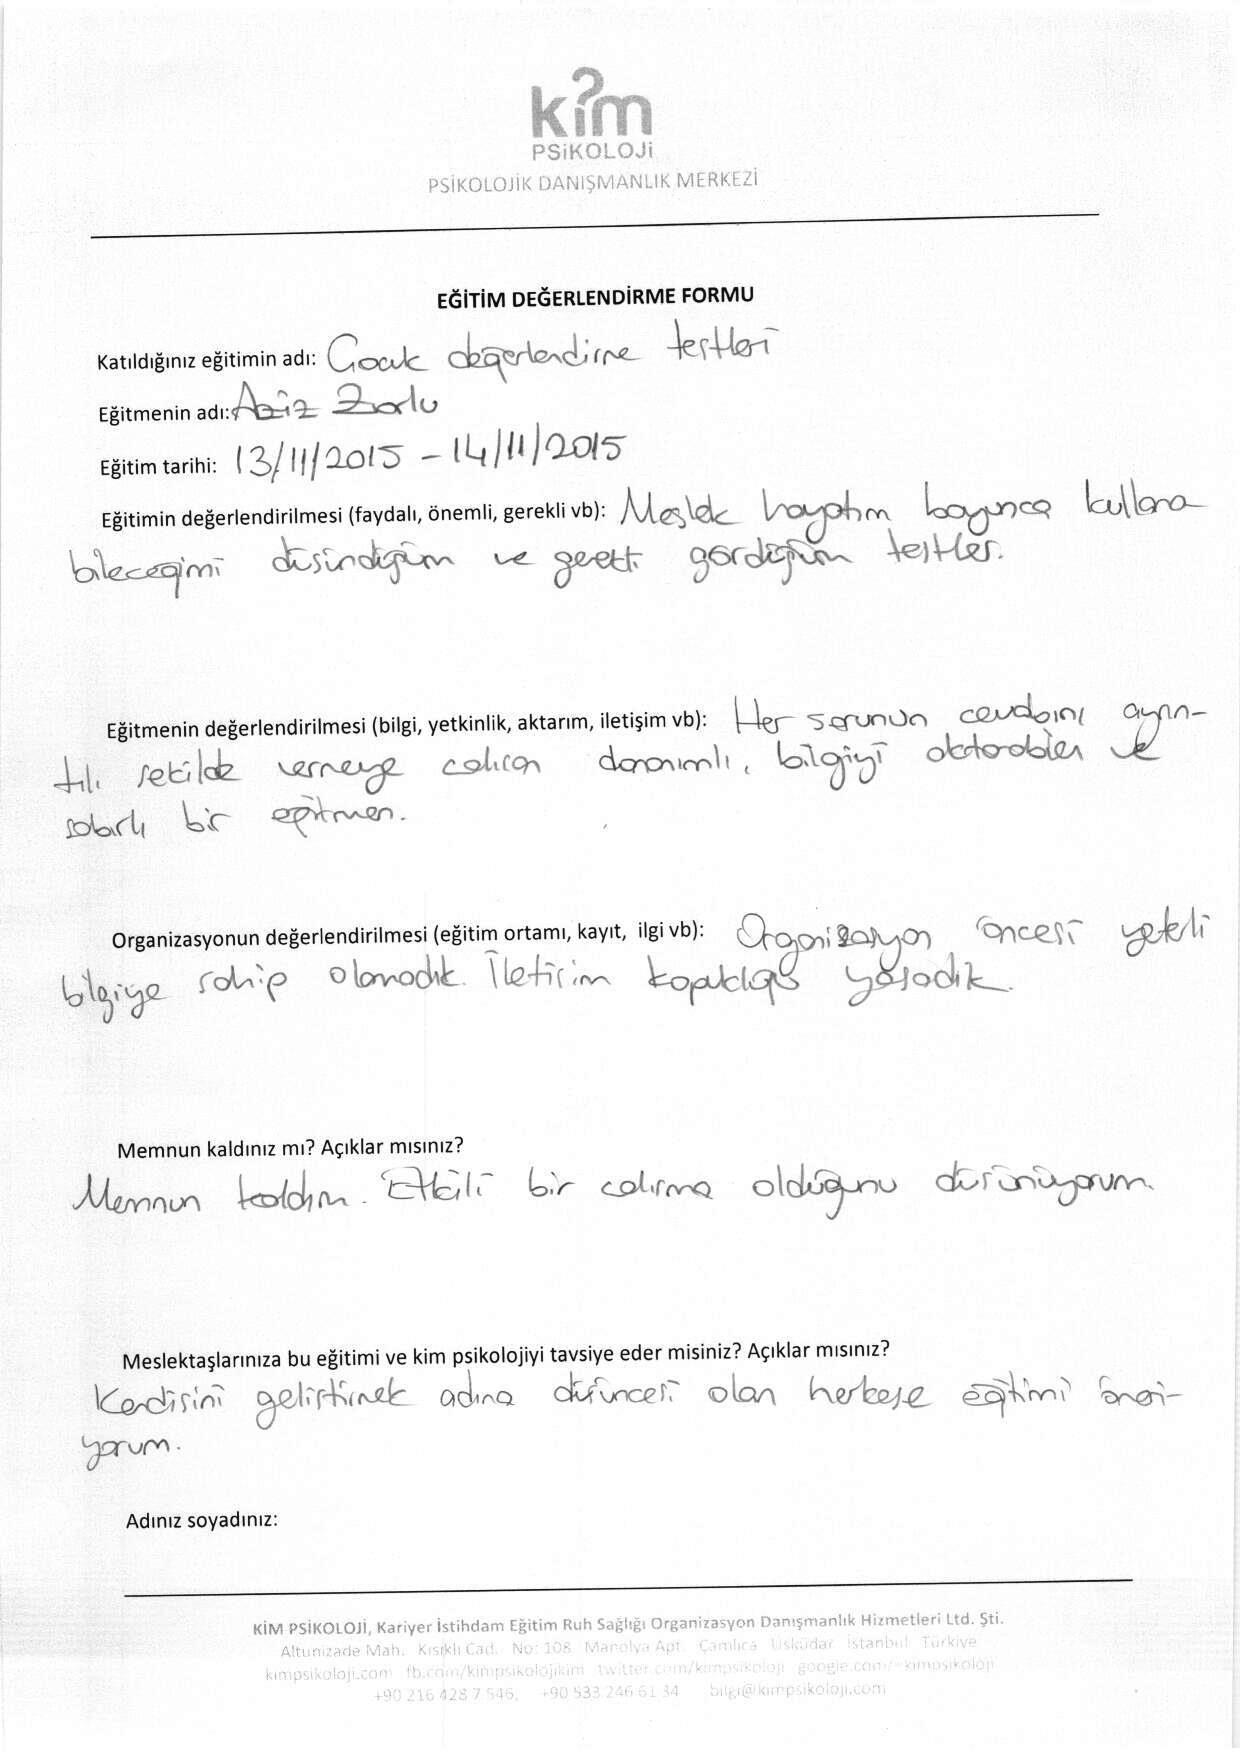 kim
PSiKOLOJi
PSİKOLOJİK DANIŞMANLIK MERKEZİ
EĞİTİM DEĞERLENDİRME FORMU
Katıldığınız eğitimin adı: Çocuk değerlendirme testleri
Eğitmenin adı: Aziz Zorlu
Eğitim tarihi: 13/11/2015 - 14/11/2015
Eğitimin değerlendirilmesi (faydalı, önemli, gerekli vb): Meslek hayatım boyunca kullana
bileceğimi düşündüğüm ve gerekli gördüğüm testler.
Eğitmenin değerlendirilmesi (bilgi, yetkinlik, aktarım, iletişim vb): Her sorunun cevabını ayrın-
tılı şekilde vermeye çalışan donanımlı, bilgiyi aktarabilen ve
sabırlı bir eğitmen.
Organizasyonun değerlendirilmesi (eğitim ortamı, kayıt, ilgi vb): Organizasyon öncesi yeterli
bilgiye sahip olamadık. İletişim kopukluğu yaşadık.
Memnun kaldınız mı? Açıklar mısınız?
Memnun kaldım. Etkili bir çalışma olduğunu düşünüyorum.
Meslektaşlarınıza bu eğitimi ve kim psikolojiyi tavsiye eder misiniz? Açıklar mısınız?
Kendisini geliştirmek adına düşüncesi olan herkese eğitimi öneri-
yorum.
Adınız soyadınız:
KİM PSİKOLOJİ, Kariyer İstihdam Eğitim Ruh Sağlığı Organizasyon Danışmanlık Hizmetleri Ltd. Şti.
Altunizade Mah. Kısıklı Cad. No: 108 Manolya Apt. Çamlıca Üsküdar İstanbul Türkiye
kimpsikoloji.com fb.com/kimpsikolojikim twitter.com/kimpsikoloji google.com/+kimpsikoloji
+90 216 428 7 546, +90 533 246 61 34 bilgi@kimpsikoloji.com